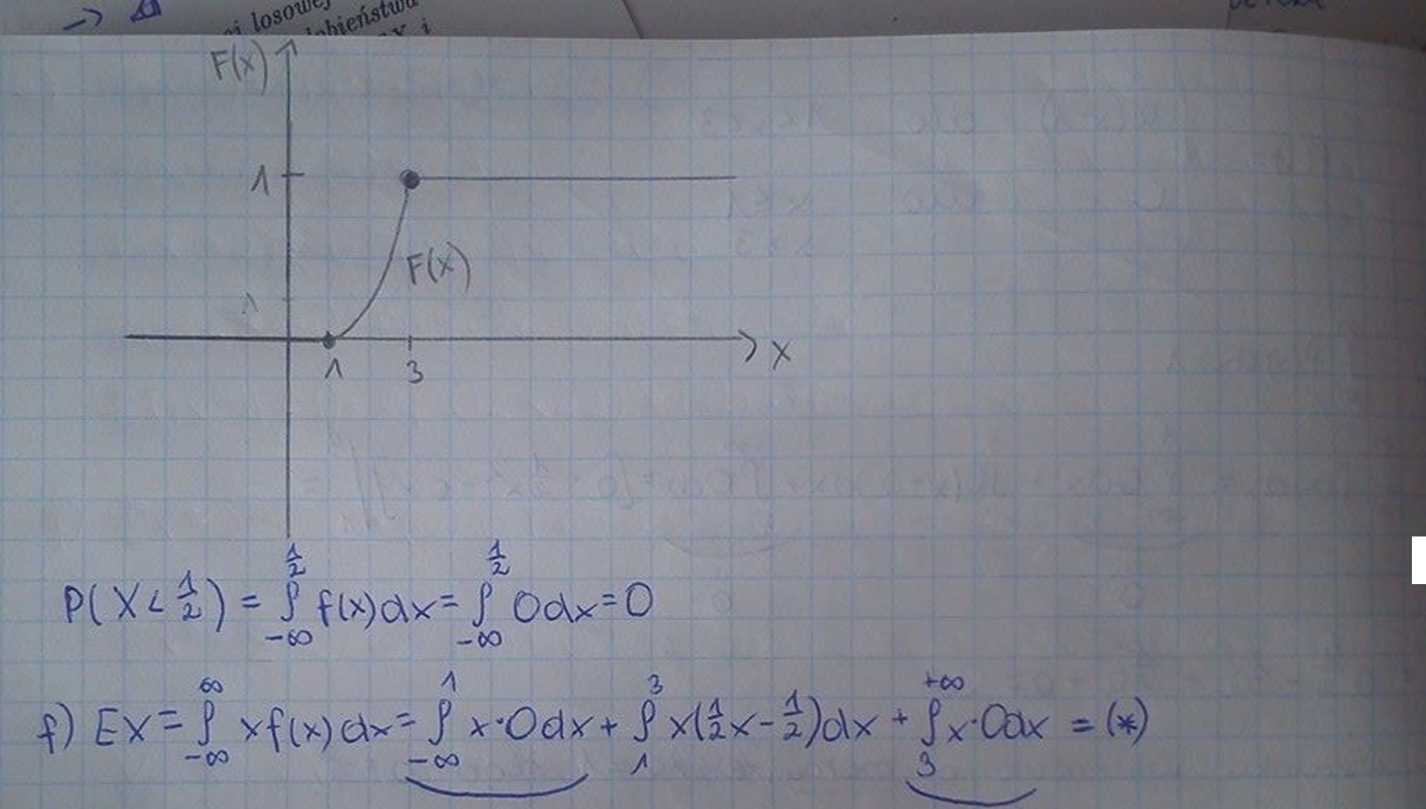 ->
ej losowej
lobieństwa
i
F(x)
1
F(x)
1
1 3 x
P(X<1/2) = ∫_{-∞}^{1/2} f(x)dx = ∫_{-∞}^{1/2} 0dx = 0
f) EX = ∫_{-∞}^{∞} x f(x)dx = ∫_{-∞}^{1} x·0dx + ∫_{1}^{3} x(1/2x - 1/2)dx + ∫_{3}^{+∞} x·0dx = (*)